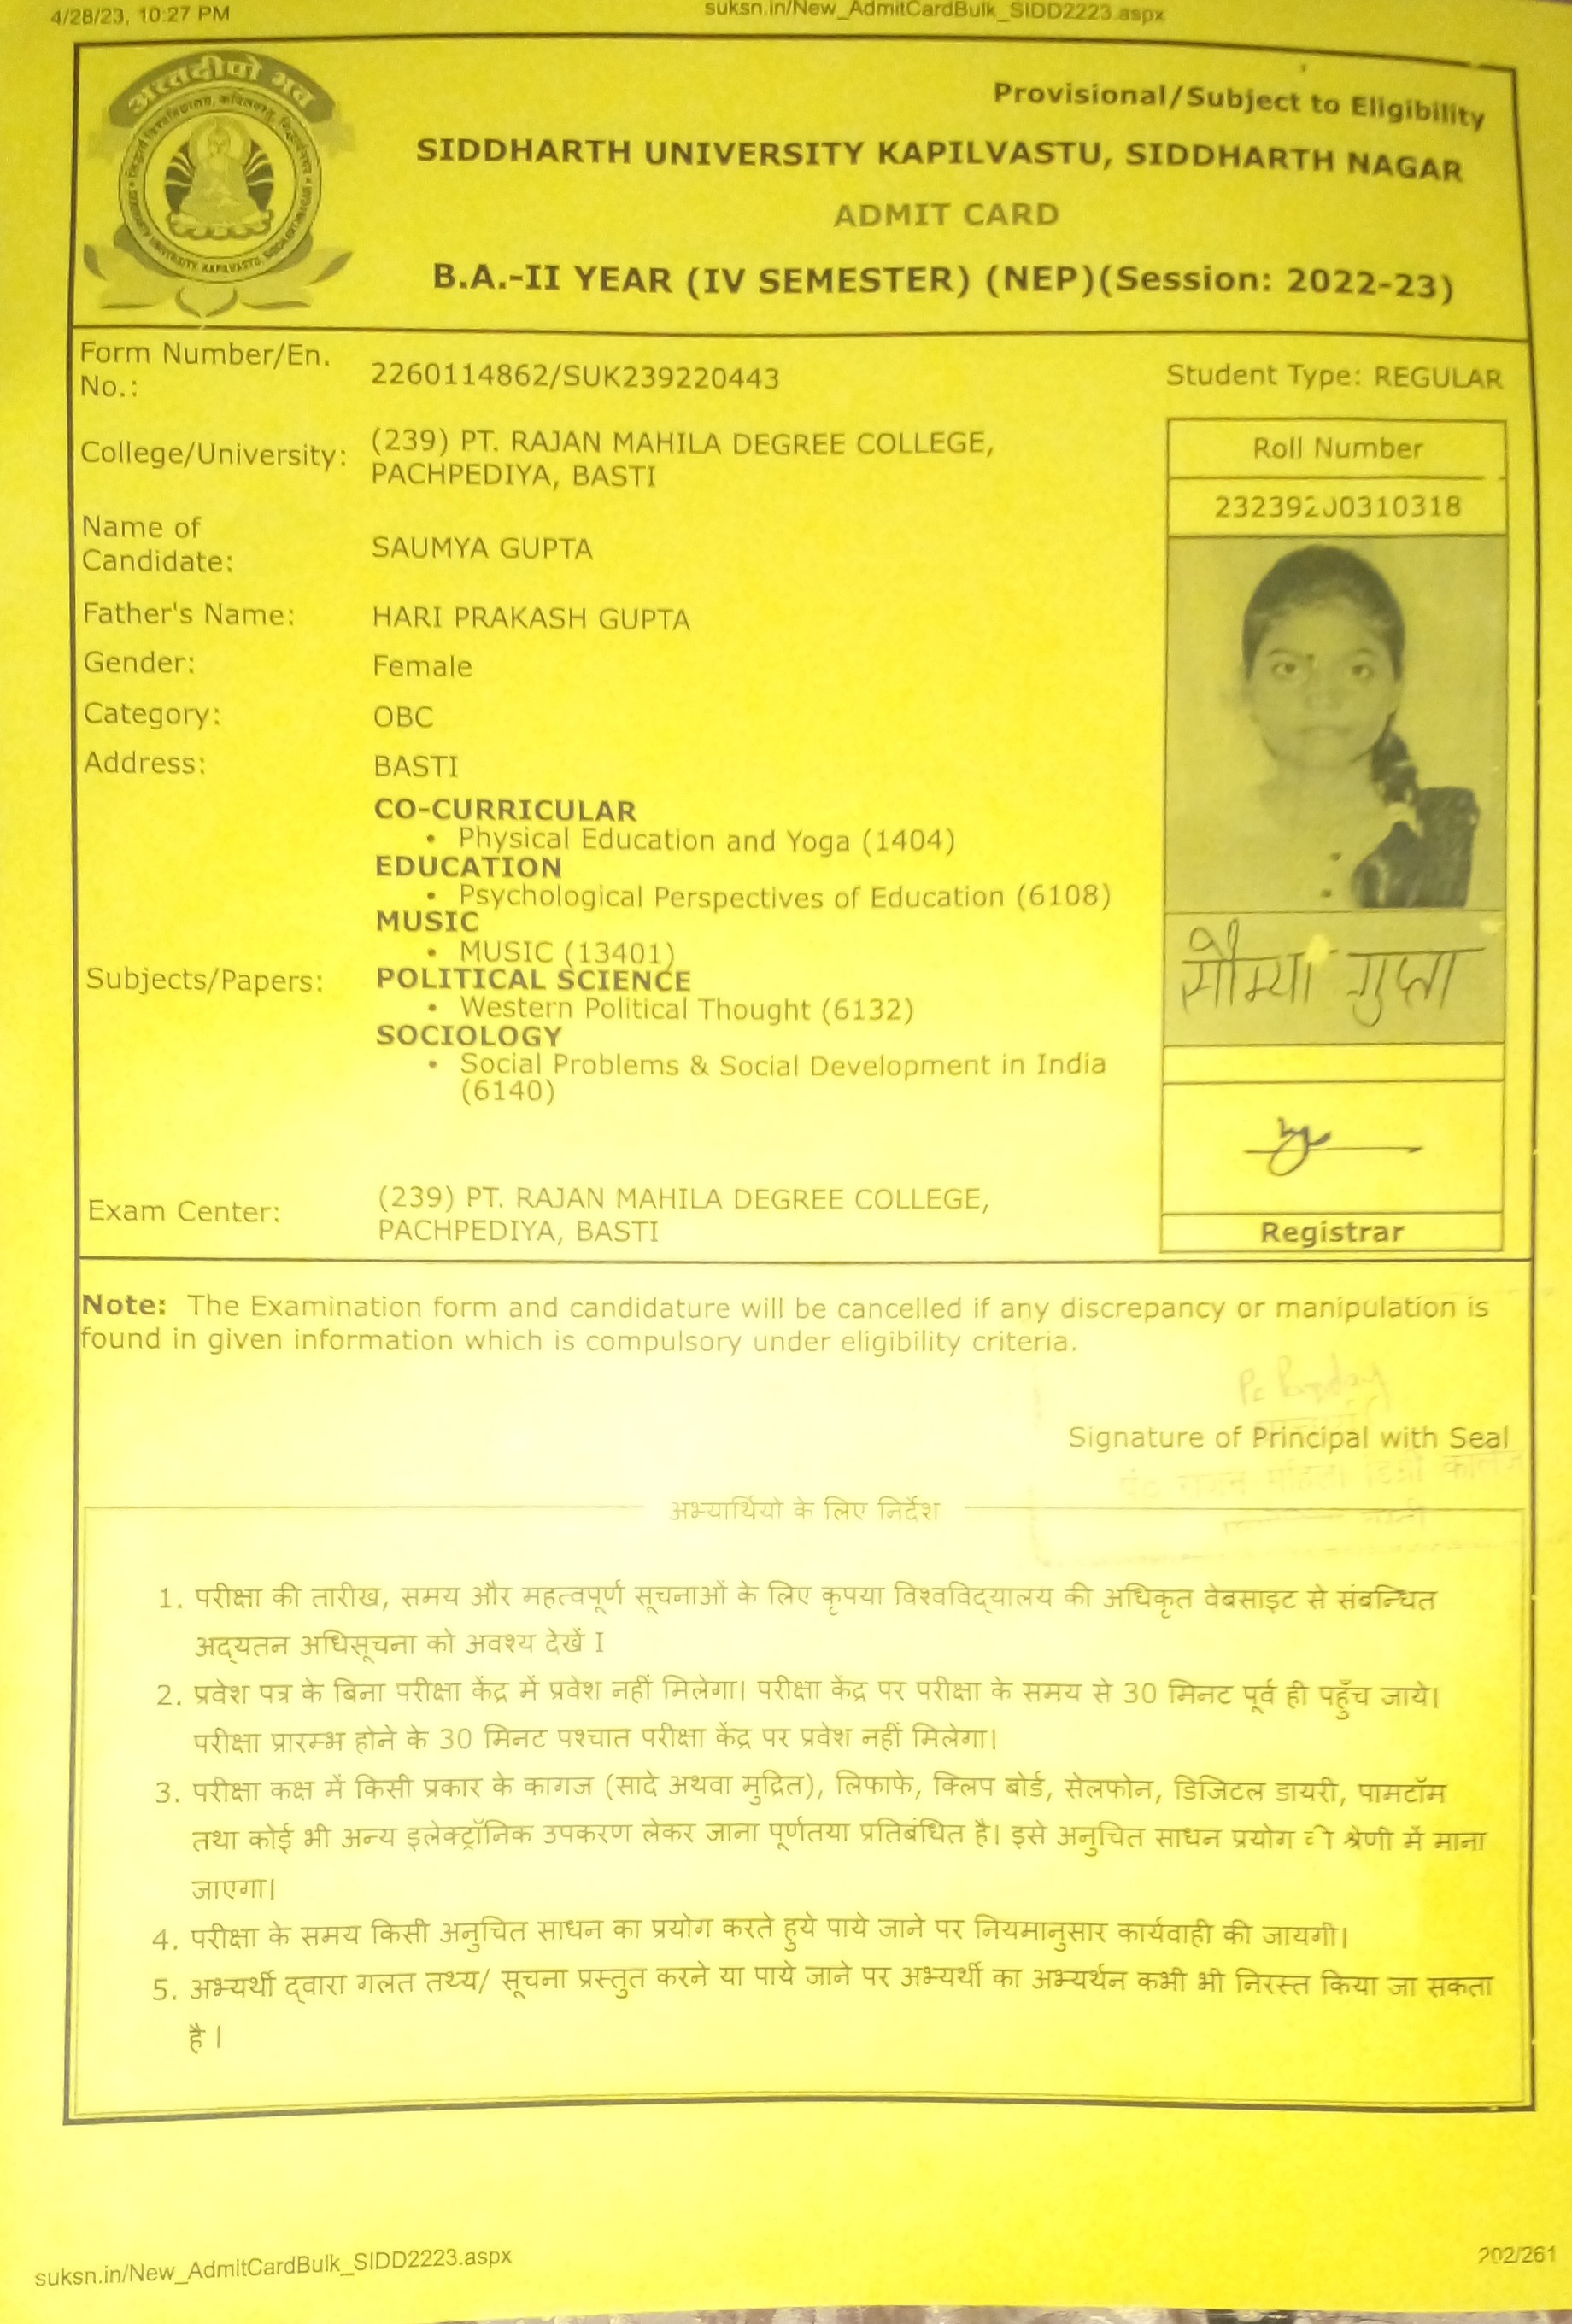 4/28/23, 10:27 PM
suksn.in/New_AdmitCardBulk_SIDD2223.aspx
अत्तदीपो भव
Provisional/Subject to Eligibility
SIDDHARTH UNIVERSITY KAPILVASTU, SIDDHARTH NAGAR
ADMIT CARD
B.A.-II YEAR (IV SEMESTER) (NEP)(Session: 2022-23)
Form Number/En. No.:
2260114862/SUK239220443
Student Type: REGULAR
College/University:
(239) PT. RAJAN MAHILA DEGREE COLLEGE,
PACHPEDIYA, BASTI
Roll Number
Name of
Candidate:
SAUMYA GUPTA
Father's Name:
HARI PRAKASH GUPTA
Gender:
Female
Category:
OBC
Address:
BASTI
Subjects/Papers:
CO-CURRICULAR
• Physical Education and Yoga (1404)
EDUCATION
• Psychological Perspectives of Education (6108)
MUSIC
• MUSIC (13401)
POLITICAL SCIENCE
• Western Political Thought (6132)
SOCIOLOGY
• Social Problems & Social Development in India
(6140)
सौम्या गुप्ता
Exam Center:
(239) PT. RAJAN MAHILA DEGREE COLLEGE,
PACHPEDIYA, BASTI
Registrar
Note: The Examination form and candidature will be cancelled if any discrepancy or manipulation is
found in given information which is compulsory under eligibility criteria.
Signature of Principal with Seal
पं० राजन महिला डिग्री कालेज
अभ्यार्थियो के लिए निर्देश
1. परीक्षा की तारीख, समय और महत्वपूर्ण सूचनाओं के लिए कृपया विश्वविद्यालय की अधिकृत वेबसाइट से संबन्धित
अद्यतन अधिसूचना को अवश्य देखें I
2. प्रवेश पत्र के बिना परीक्षा केंद्र में प्रवेश नहीं मिलेगा। परीक्षा केंद्र पर परीक्षा के समय से 30 मिनट पूर्व ही पहुँच जाये।
परीक्षा प्रारम्भ होने के 30 मिनट पश्चात परीक्षा केंद्र पर प्रवेश नहीं मिलेगा।
3. परीक्षा कक्ष में किसी प्रकार के कागज (सादे अथवा मुद्रित), लिफाफे, क्लिप बोर्ड, सेलफोन, डिजिटल डायरी, पामटॉम
तथा कोई भी अन्य इलेक्ट्रॉनिक उपकरण लेकर जाना पूर्णतया प्रतिबंधित है। इसे अनुचित साधन प्रयोग की श्रेणी में माना
जाएगा।
4. परीक्षा के समय किसी अनुचित साधन का प्रयोग करते हुये पाये जाने पर नियमानुसार कार्यवाही की जायगी।
5. अभ्यर्थी द्वारा गलत तथ्य/ सूचना प्रस्तुत करने या पाये जाने पर अभ्यर्थी का अभ्यर्थन कभी भी निरस्त किया जा सकता
है |
suksn.in/New_AdmitCardBulk_SIDD2223.aspx
202/261